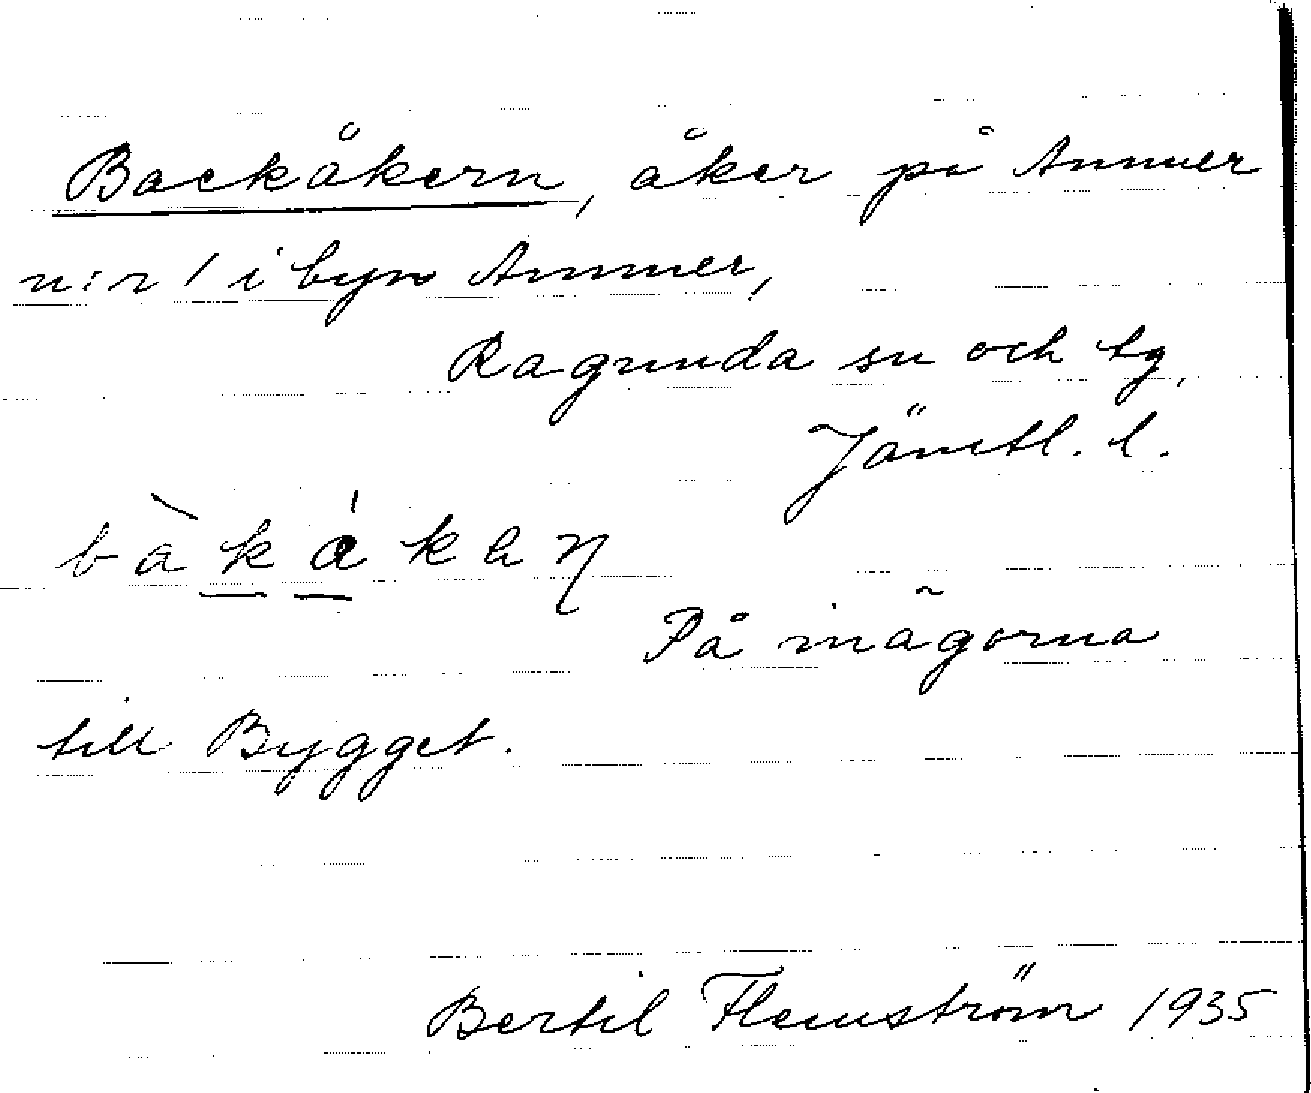 Backåkern, åker på Ammer
n:r 1 i byn Ammer,
Ragunda sn och tg,
Jämtl. l.
bàkåkan
På inägorna
till Bygget.
Bertil Flemström 1935